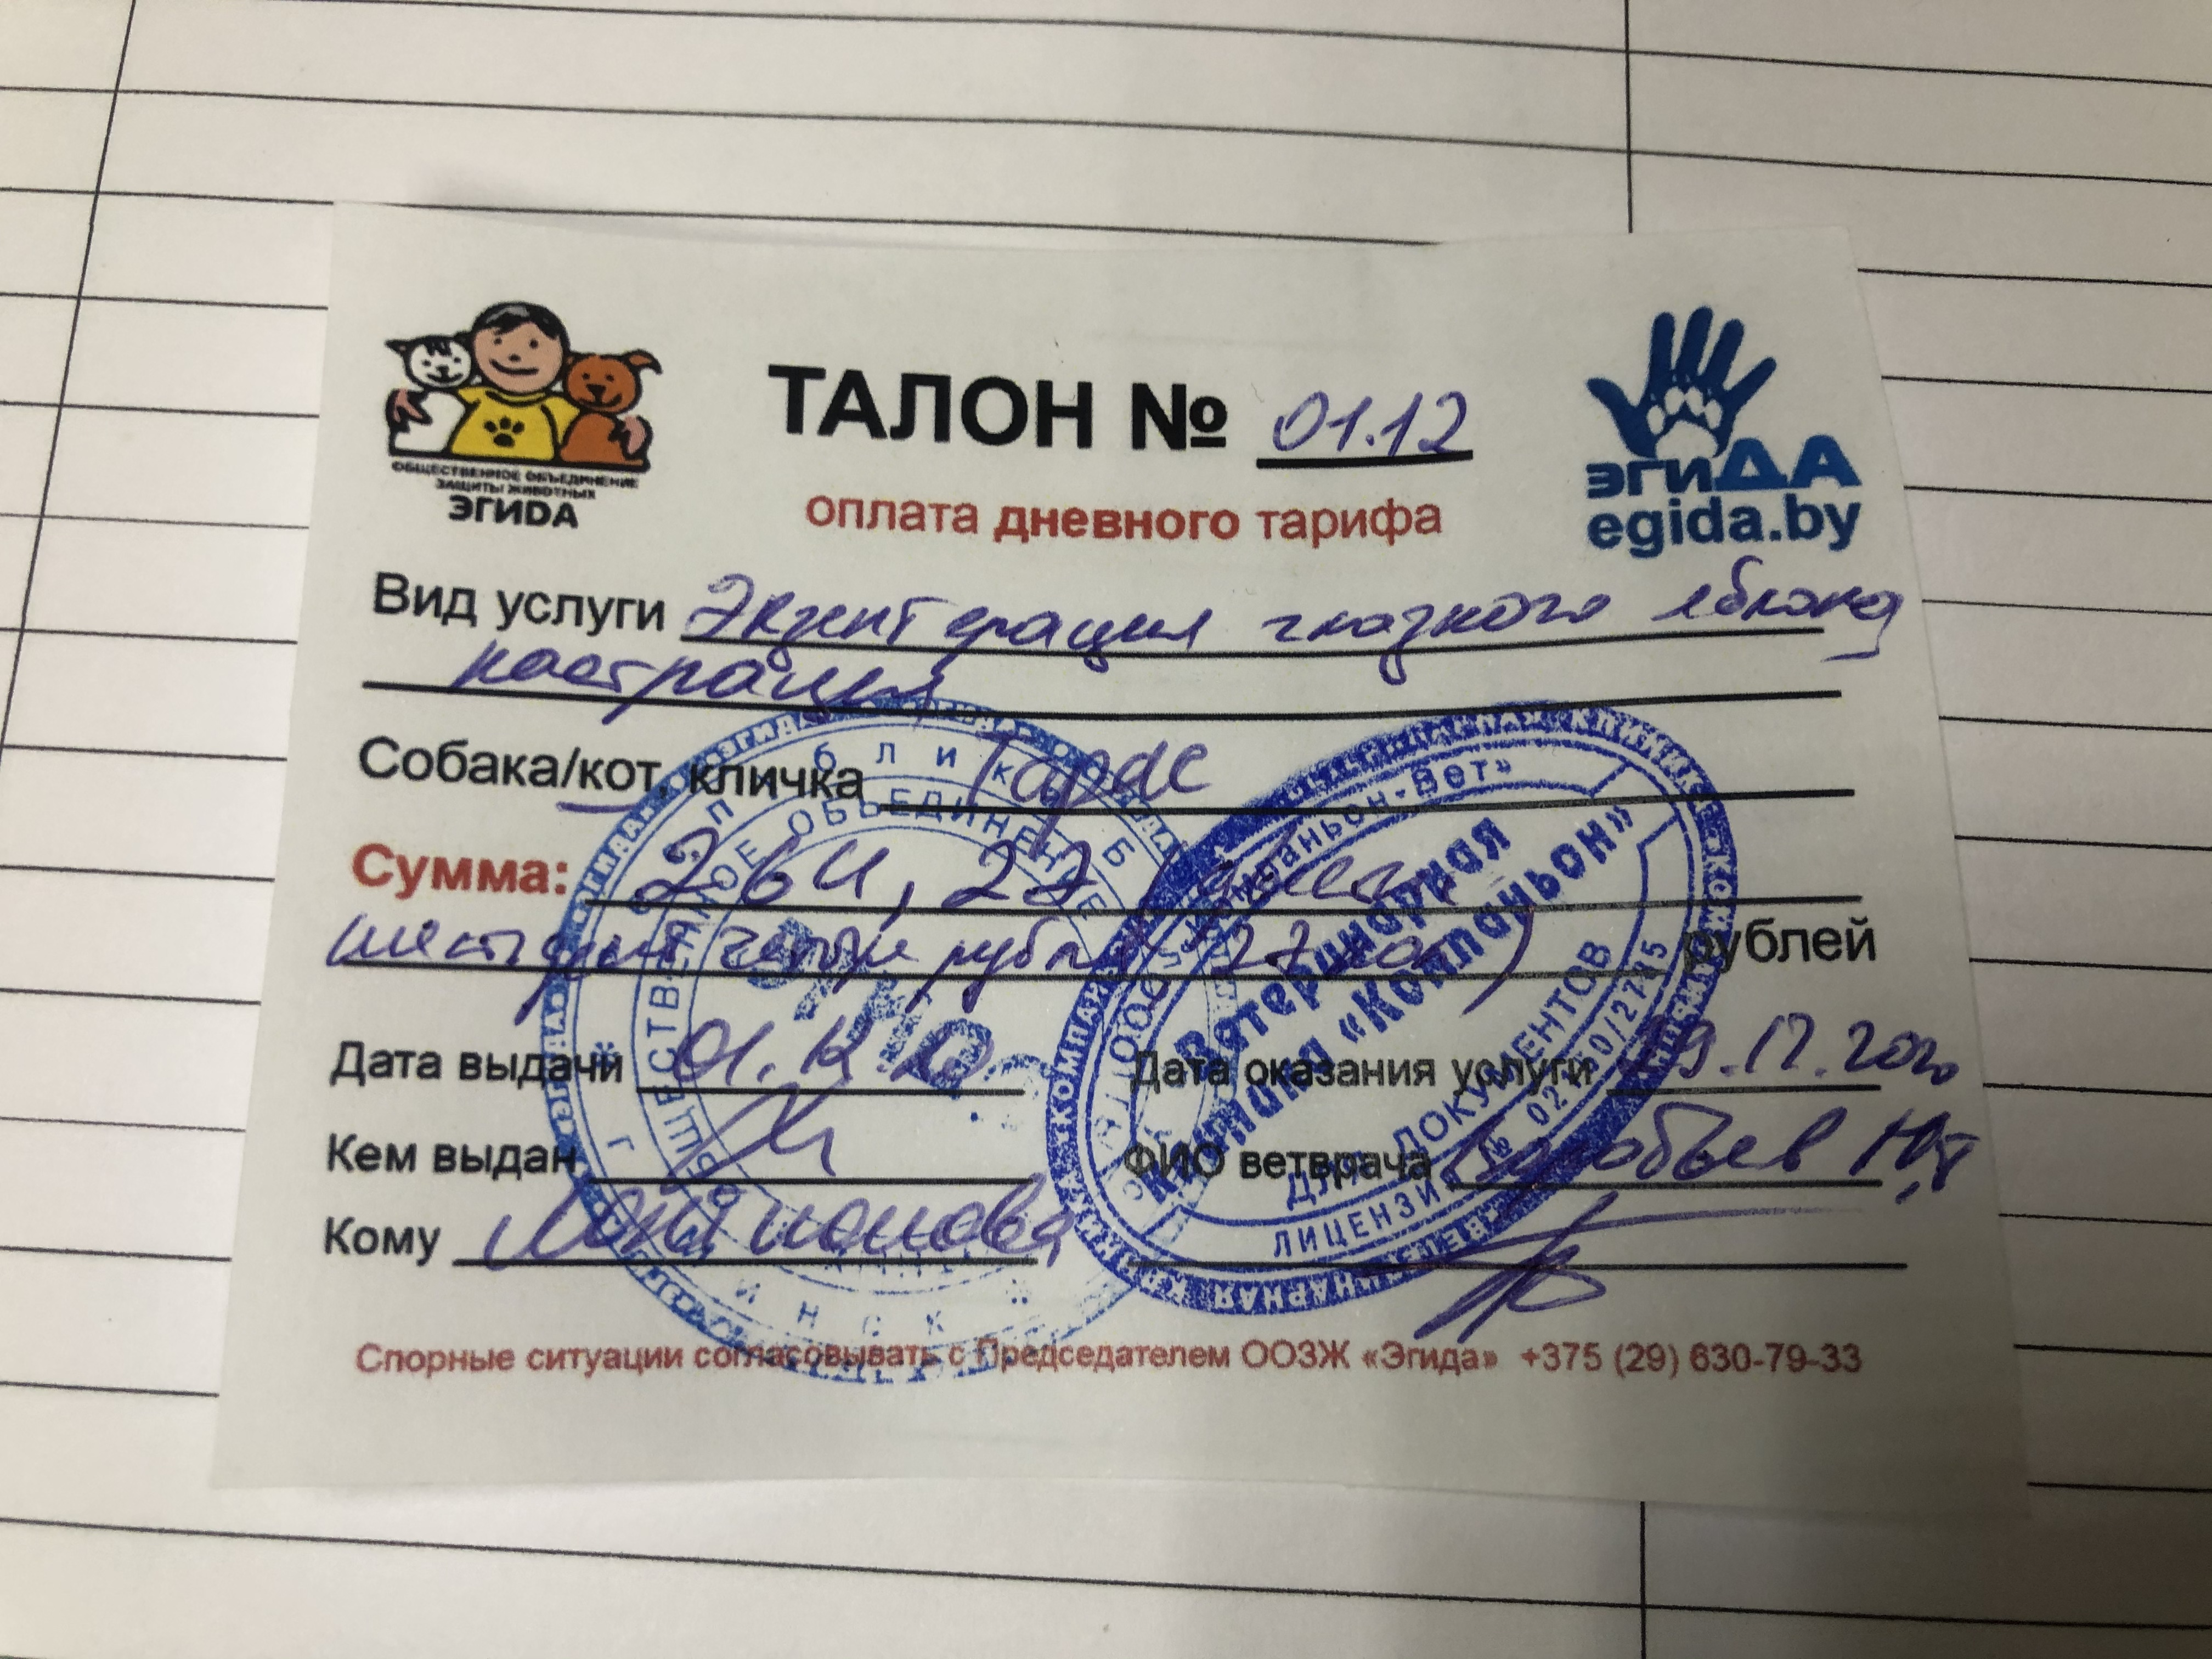 ТАЛОН № 01.12
оплата дневного тарифа
ОБЩЕСТВЕННОЕ ОБЪЕДИНЕНИЕ
ЗАЩИТЫ ЖИВОТНЫХ
ЭГИДА
эгиДА
egida.by
Вид услуги Экзентерация глазного яблока
кастрация
Собака/кот, кличка Тарас
Сумма: 264, 27 (двести
шестьдесят четыре рубля 27 коп) рублей
Дата выдачи 01.12.20 Дата оказания услуги 09.12.2020
Кем выдан ФИО ветврача Воробьев
Кому
Спорные ситуации согласовывать с Председателем ООЗЖ «Эгида» +375 (29) 630-79-33
ОБЩЕСТВЕННОЕ ОБЪЕДИНЕНИЕ
Ветеринарная
клиника «Компаньон»
ДЛЯ ДОКУМЕНТОВ